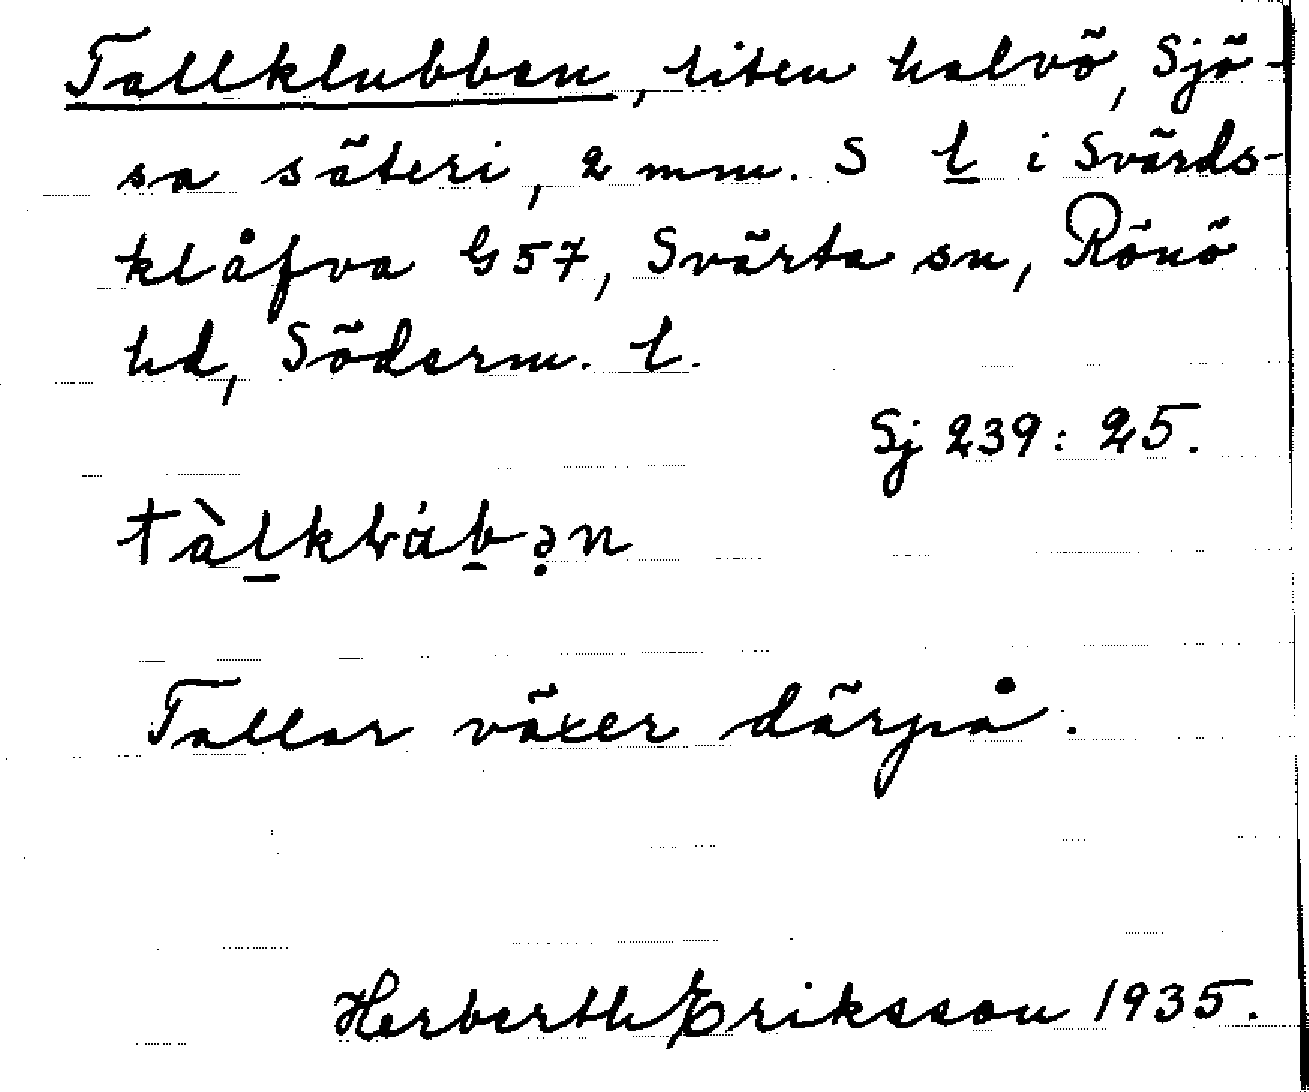 Tallklubben, liten halvö, Sjö-
sa säteri, 2 mm. S l i Svärds-
klåfva G 57, Svärta sn, Rönö
hd, Söderm. l.
Sj 239: 25.
Tallar växer därpå.
Herberth Eriksson 1935.